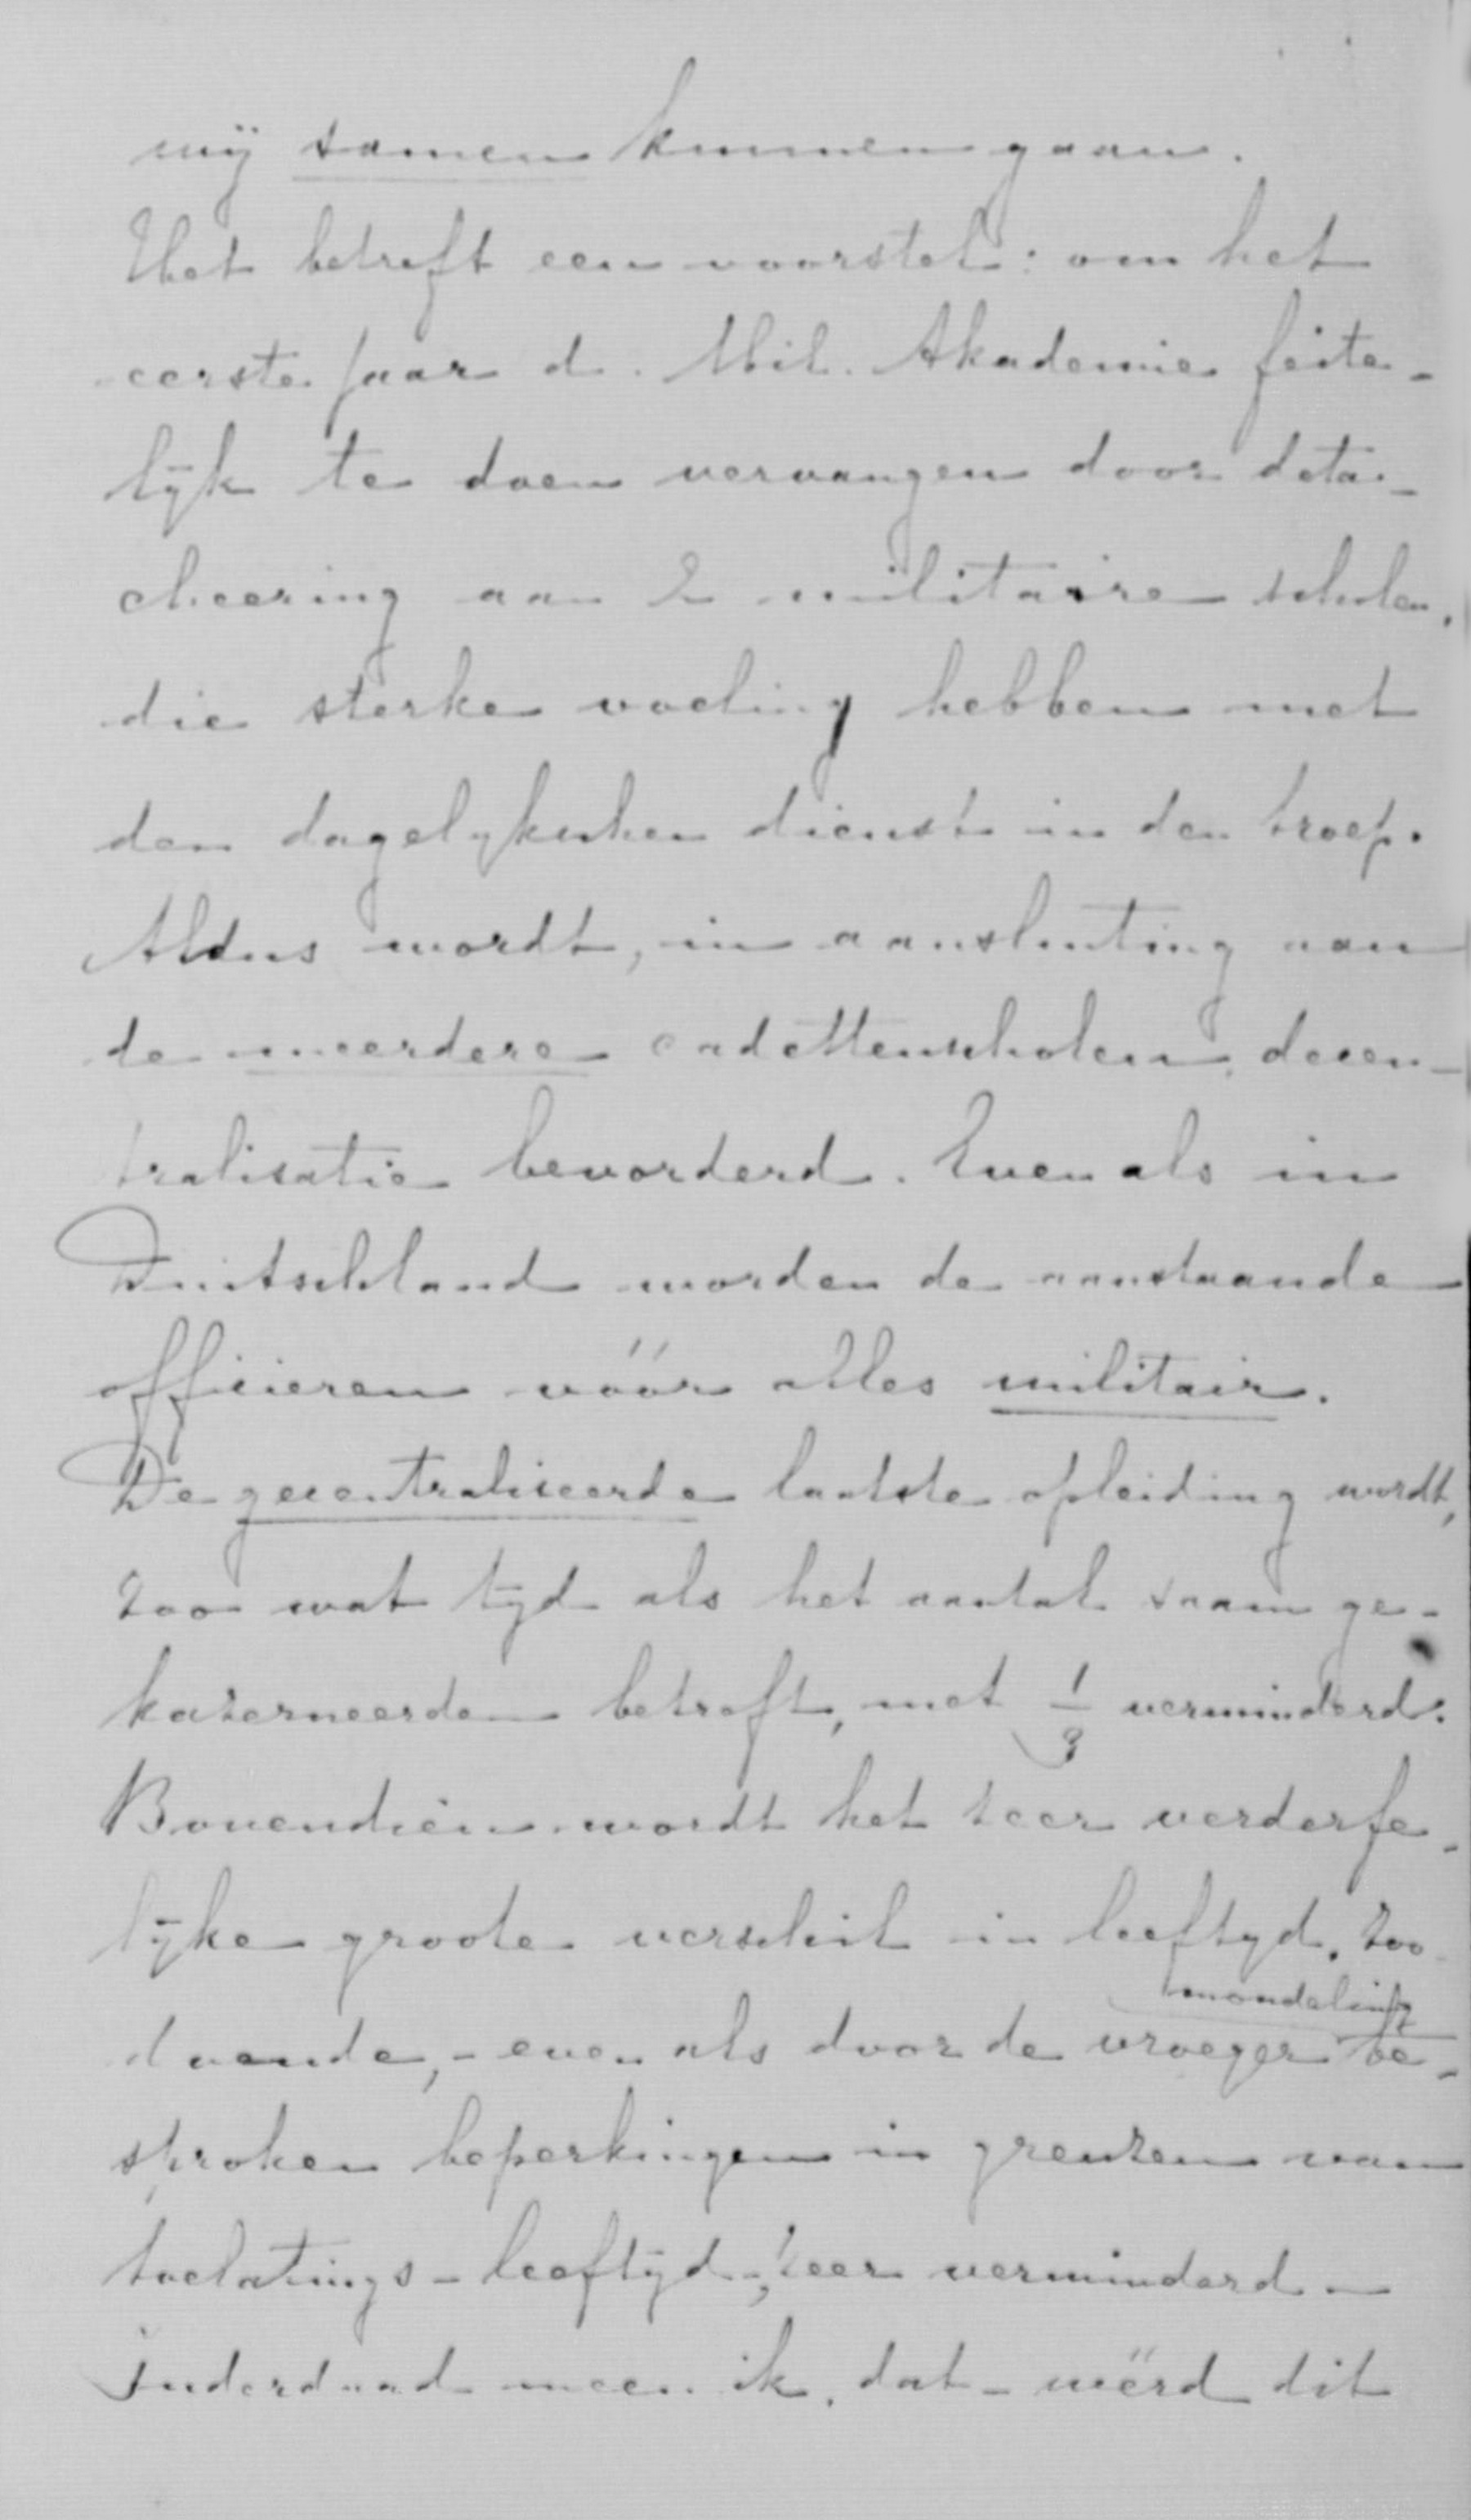 wij samen kunnen gaan.
Het betreft een voorstel: om het
eerste jaar d. Mil. Akademie feite-
lijk te doen vervangen door deta-
cheering aan 2 militaire scholen,
die sterke voeling hebben met
den dagelykschen dienst in den troep.
Aldus wordt, in aansluiting aan
de meerdere cadettenscholen, decen-
tralisatie bevorderd. Evenals in
Duitschland worden de aanstaande
officieren vóór alles militair.
De gecentraliseerde laatste opleiding wordt,
zoo wat tijd als het aantal saam ge-
kazerneerden betreft, met 1/3 verminderd.
Bovendien wordt het zeer verderfe-
lijke groote verschil in leeftyd, zoo
mondeling
doende, - even als door de vroeger be-
sproken beperkingen in grenzen van
toelatings-leeftijd -, zeer verminderd -
Inderdaad meen ik, dat - wërd dit